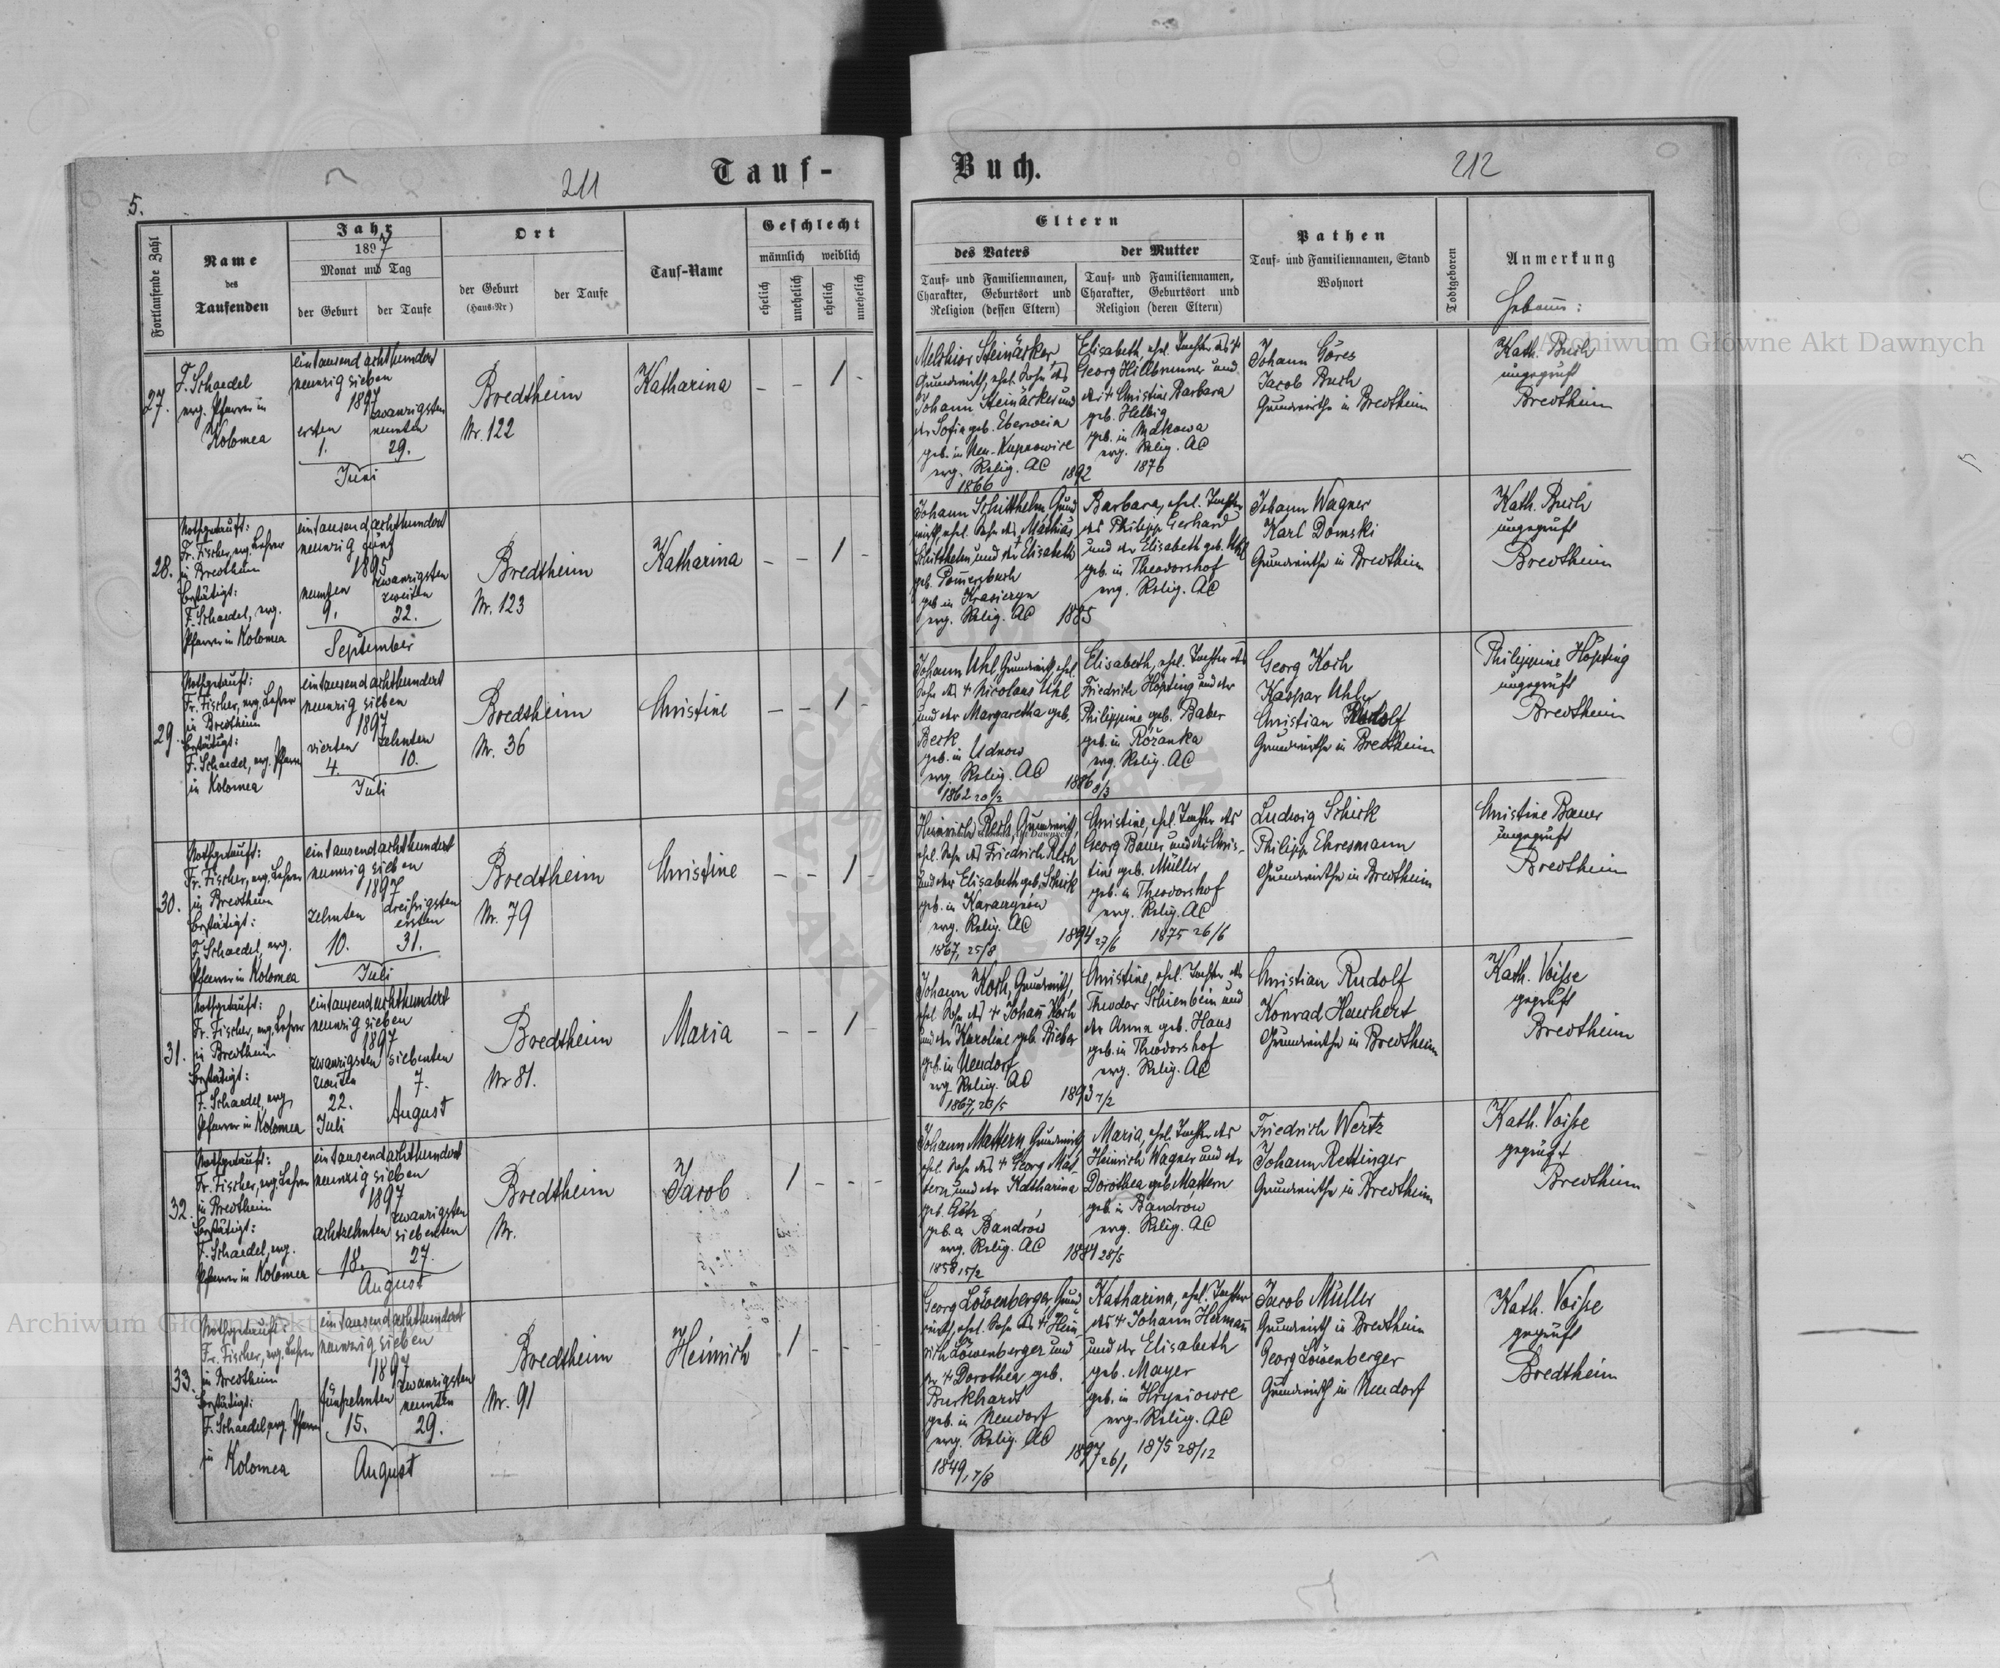 Tauf-
Buch.
211
212
5.
Fortlaufende Zahl
Name
des
Taufenden
Jahr
1897
Monat und Tag
der Geburt
der Taufe
Ort
der Geburt
(Haus-Nr)
der Taufe
Tauf-Name
Geschlecht
männlich
weiblich
ehelich
unehelich
ehelich
unehelich
Eltern
des Vaters
Tauf- und Familiennamen,
Charakter, Geburtsort und
Religion (dessen Eltern)
der Mutter
Tauf- und Familiennamen,
Charakter, Geburtsort und
Religion (deren Eltern)
Pathen
Tauf- und Familiennamen, Stand
Wohnort
Todtgeboren
Anmerkung
27.
F. Schaedel
evg. Pfarrer in
Kolomea
eintausendachthundert
neunzig sieben
1897
ersten
1.
zwanzigsten
neunten
29.
Juni
Bredtheim
Nr. 122
Katharina
- - 1 -
Melchior Steinäcker
Grundwirth, ehel. Sohn des
Johann Steinäcker und
der Sofia geb. Eberwein
geb. in Neu-Kupnowice
evg. Relig. AC
1866
1892
Elisabeth, ehel. Tochter des +
Georg Hillbrunner und
der + Christine Barbara
geb. Helbig
geb. in Makowa
evg. Relig. AC
1876
Johann Göres
Jacob Buch
Grundwirthe in Bredtheim
Kath. Buch
ungeprüft
Bredtheim
28.
Nothgetauft:
Fr. Fischer, evg. Lehrer
in Bredtheim
Bestätigt:
F. Schaedel, evg.
Pfarrer in Kolomea
eintausendachthundert
neunzig fünf
1895
neunten
9.
zwanzigsten
zweiten
22.
September
Bredtheim
Nr. 123
Katharina
- - 1 -
Johann Schitthelm, Grund
wirth, ehel. Sohn des Mathias
Schitthelm und der Elisabeth
evg. Relig. AC
1885
Barbara, ehel. Tochter
des Philipp Gerhard
und der Elisabeth geb. Uhl
geb. in Theodorshof
evg. Relig. AC
Johann Wagner
Karl Domski
Grundwirthe in Bredtheim
Kath. Buch
ungeprüft
Bredtheim
29.
Nothgetauft:
Fr. Fischer, evg. Lehrer
in Bredtheim
Bestätigt:
F. Schaedel, evg. Pfarrer
in Kolomea
eintausendachthundert
neunzig sieben
1897
vierten
4.
zehnten
10.
Juli
Bredtheim
Nr. 36
Christine
- - 1 -
Johann Uhl, Grundwirth, ehel.
Sohn des + Nicolaus Uhl
und der Margaretha geb.
Beck
geb. in Udnow
evg. Relig. AC
1862 20/2
1886 8/3
Elisabeth, ehel. Tochter des
Friedrich Höpting und der
Philippine geb. Baber
geb. in Różanka
evg. Relig. AC
Georg Koch
Kaspar Uhly
Christian Rudolf
Grundwirthe in Bredtheim
Philippine Höpting
ungeprüft
Bredtheim
30.
Nothgetauft:
Fr. Fischer, evg. Lehrer
in Bredtheim
Bestätigt:
F. Schaedel, evg.
Pfarrer in Kolomea
eintausendachthundert
neunzig sieben
1897
zehnten
10.
dreißigsten
ersten
31.
Juli
Bredtheim
Nr. 79
Christine
- - 1 -
Heinrich Rech, Grundwirth,
ehel. Sohn des Friedrich Rech
und der Elisabeth geb. Schick
evg. Relig. AC
1867, 25/8
1894 27/6
Christine, ehel. Tochter des
Georg Bauer und der Chris-
tine geb. Müller
geb. in Theodorshof
evg. Relig. AC
1875 26/6
Ludwig Schick
Philipp Ehresmann
Grundwirthe in Bredtheim
Christine Bauer
ungeprüft
Bredtheim
31.
Nothgetauft:
Fr. Fischer, evg. Lehrer
in Bredtheim
Bestätigt:
F. Schaedel, evg.
Pfarrer in Kolomea
eintausendachthundert
neunzig sieben
1897
zwanzigsten
zweiten
22.
Juli
siebenten
7.
August
Bredtheim
Nr 81.
Maria
- - 1 -
Johann Koch, Grundwirth,
ehel. Sohn des + Johann Koch
und der Karoline geb. Bieber
geb. in Neudorf
evg. Relig. AC
1867, 26/5
1893 7/2
Christine, ehel. Tochter des
Theodor Schienbein und
der Anna geb. Haus
geb. in Theodorshof
evg. Relig. AC
Christian Rudolf
Konrad Heuchert
Grundwirthe in Bredtheim
Kath. Voiße
geprüft
Bredtheim
32.
Nothgetauft:
Fr. Fischer, evg. Lehrer
in Bredtheim
Bestätigt:
F. Schaedel, evg.
Pfarrer in Kolomea
eintausendachthundert
neunzig sieben
1897
achtzehnten
18.
zwanzigsten
siebenten
27.
August
Bredtheim
Nr.
Jacob
1 - - -
Johann Mattern, Grundwirth
ehel. Sohn des + Georg Mat-
tern und der Katharina
geb. Götz
geb. a. Bandrów
evg. Relig. AC
1858 15/2
1884 28/5
Maria, ehel. Tochter des
Heinrich Wagner und der
Dorothea geb. Mattern
geb. in Bandrów
evg. Relig. AC
Friedrich Wertz
Johann Rettinger
Grundwirthe in Bredtheim
Kath. Voiße
geprüft
Bredtheim
33.
Nothgetauft:
Fr. Fischer, evg. Lehrer
in Bredtheim
Bestätigt:
F. Schaedel, evg. Pfarrer
in Kolomea
eintausendachthundert
neunzig sieben
1897
fünfzehnten
15.
zwanzigsten
neunten
29.
August
Bredtheim
Nr. 91
Heinrich
1 - - -
Georg Löwenberger, Grund
wirth, ehel. Sohn des + Hein
rich Löwenberger und
der + Dorothea geb.
Burkhardt
geb. in Neudorf
evg. Relig. AC
1849, 7/8
1897 26/1
Katharina, ehel. Tochter
des + Johann Hermann
und der Elisabeth
geb. Mayer
geb. in Hryniowce
evg. Relig. AC
1875 28/12
Jacob Müller
Grundwirth in Bredtheim
Georg Löwenberger
Grundwirth in Neudorf
Kath. Voiße
geprüft
Bredtheim
Archiwum Główne Akt Dawnych
Archiwum Główne Akt Dawnych